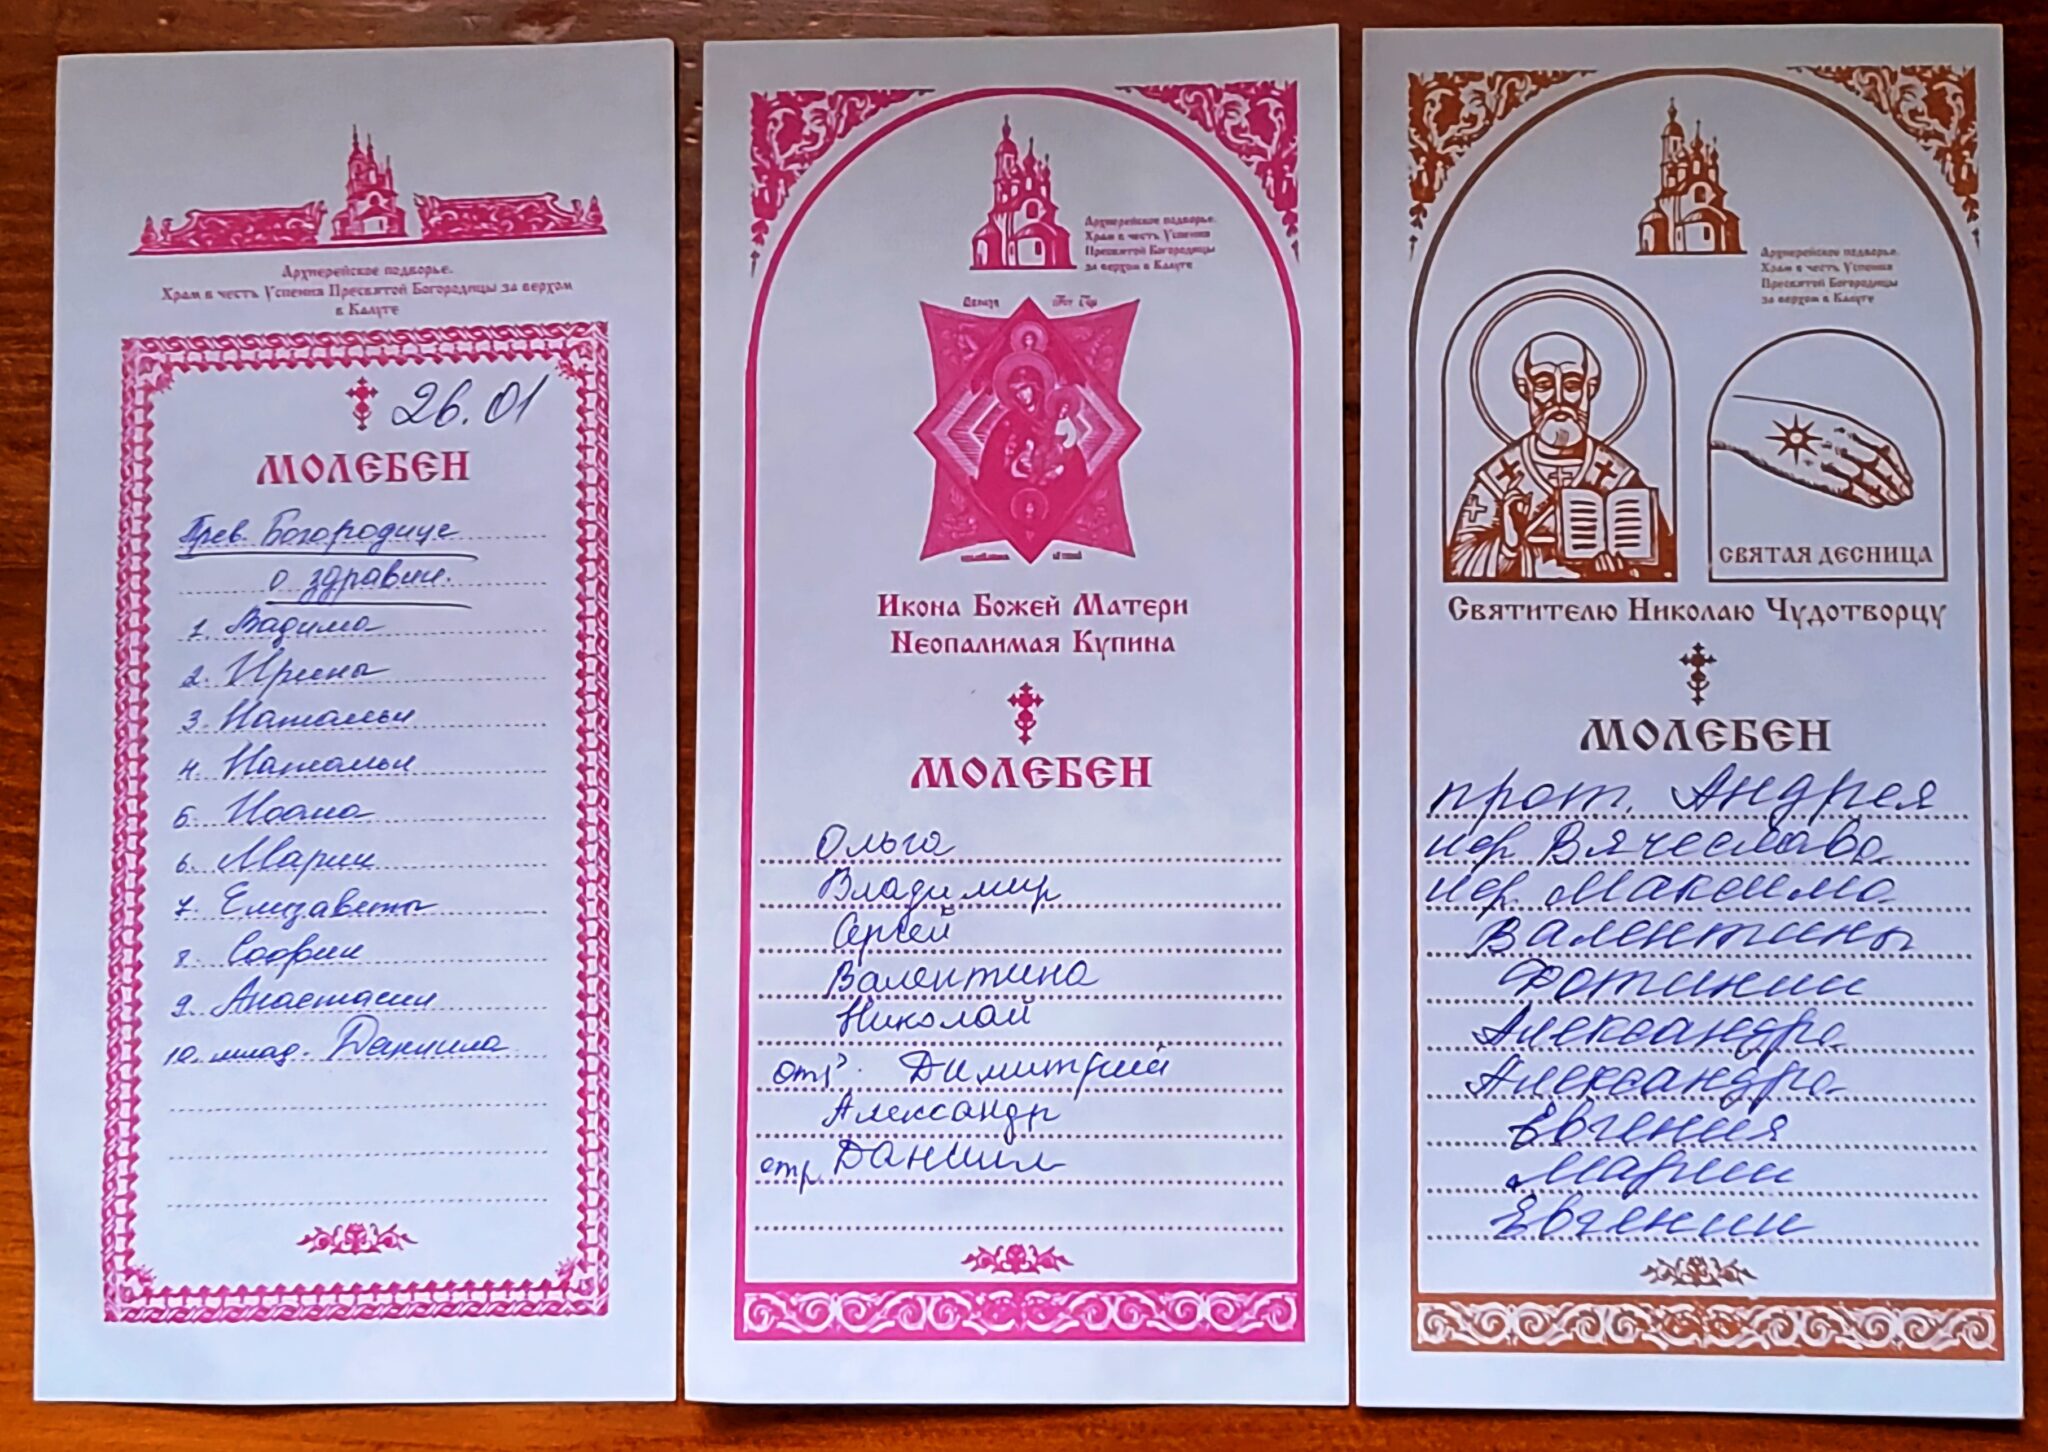 Архиерейское подворье.
Храм в честь Успения Пресвятой Богородицы за верхом
в Калуге
26.01
МОЛЕБЕН
Прев. Богородице
о здравии.
1. Вадима
2. Ирины
3. Натальи
4. Натальи
5. Иоана
6. Марии
7. Елизаветы
8. Софии
9. Анастасии
10. млад. Даниила
Архиерейское подворье.
Храм в честь Успения
Пресвятой Богородицы
за верхом в Калуге
Икона Божей Матери
Неопалимая Купина
МОЛЕБЕН
Ольга
Владимир
Сергей
Валентина
Николай
отр. Димитрий
Александр
отр. Даниил
Архиерейское подворье.
Храм в честь Успения
Пресвятой Богородицы
за верхом в Калуге
СВЯТАЯ ДЕСНИЦА
Святителю Николаю Чудотворцу
МОЛЕБЕН
прот. Андрея
иер. Вячеслава
иер. Максима
Валентины
Фотинии
Александра
Александра
Евгения
Марии
Евгении